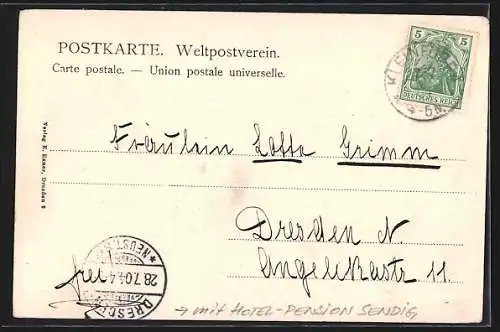 POSTKARTE. Weltpostverein.
Carte postale. — Union postale universelle.
5 5
DEUTSCHES REICH
Verlag R. Exner, Dresden 9
Fräulein Lotte Grimm
Dresden N.
Angelikastr 11.
frei
DRESDEN
28.7.04.4-
* NEUST.
→ mit HOTEL-PENSION SENDIG